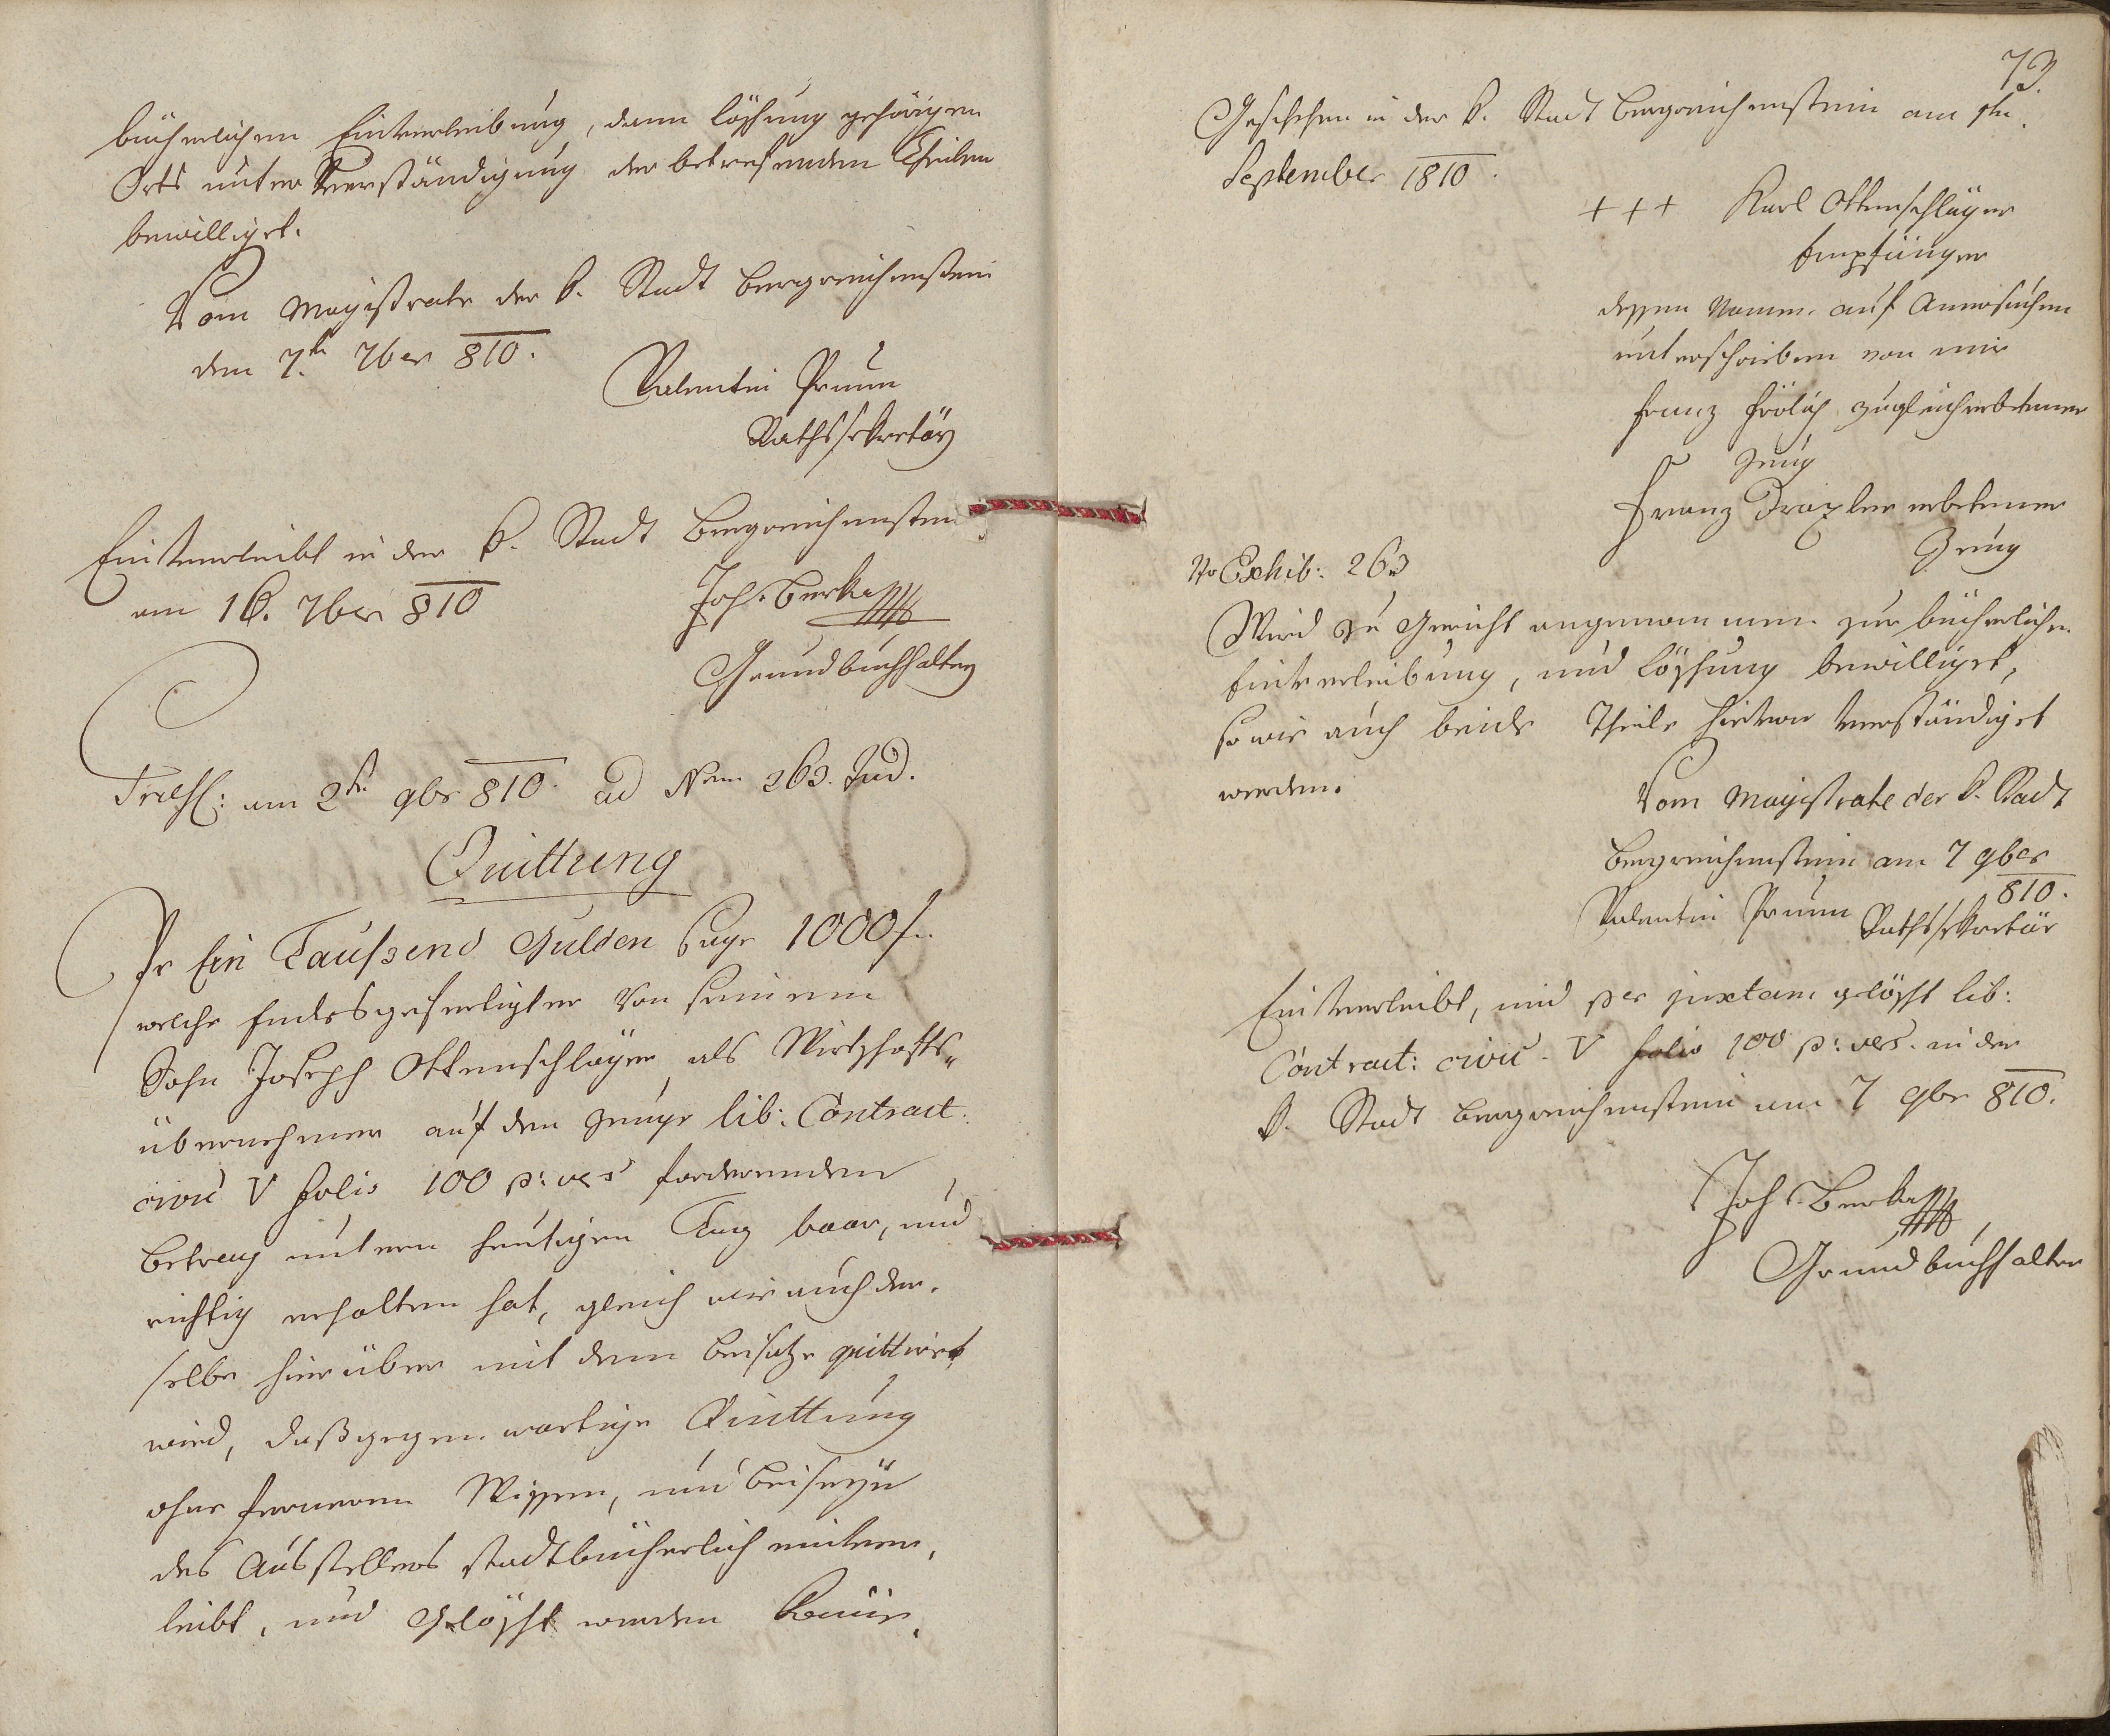 bücherlichen Einverleibung, dann Löschung gehörigen
Orts unter Verständigung der betrefenden Theilen
bewilliget.
Vom Magistrate der k. Stadt Bergreichenstein
den 7.t 7ber 810.
Valentin Prunn
Rathssekretär
Einverleibt in der k. Stadt Bergreichenstein
am 16. 7ber 810
Joh. Berka
Grundbuchhalter
am 2t 9br 810. ad Num 263. Jud.
Quittung
Pr Ein Taußend Gulden Sage 1000 f.
welche Endesgefertigter von seinem
Sohn Joseph Ottenschläger, als Wirthschafts„
übernehmer auf dem Zeuge lib: Contract:
civic V folio 100 p: ves fordernden
Betrag untern heutigen Tag baar, und
richtig erhalten hat, gleich wie auch der„
selbe hierüber mit dem Beisatze quittiret
wird, daß gegenwartige Quittung
ohne ferneren Wissen, und Beiseyn
des Ausstellers stadtbücherlich einver„
leibt, und gelöscht werden könne.
73.
Geschehen in der k. Stadt Bergreichenstein am 1tn
September 1810.
+++ Karl Ottenschläger
Empfänger
dessen Namen auf Anersuchen
unterschrieben von mir
Franz Frölich zugleich erbetener
Zeug
Franz Draxler erbetener
Zeug
No Exhib: 263
Wird zu Gericht angenommen zur bücherlichen
Einverleibung, und Löschung bewilliget,
so wie auch beide Theile hievon verständiget
werden.
Vom Magistrate der k. Stadt
Bergreichenstein am 7 9ber
810.
Valentin Prunn Rathssekretär
Einverleibt, und per juxtam gelöscht lib:
Contract: civic. V folio 100 p: ves. in der
k. Stadt Bergreichenstein am 7 9br 810.
Joh. Berka
Grundbuchhalter